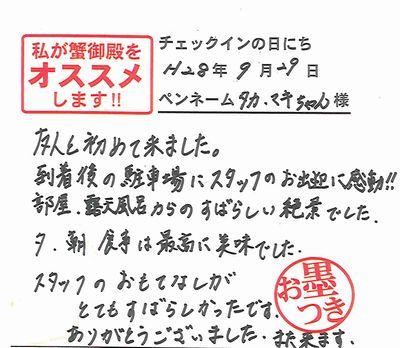 私が蟹御殿を
オススメ
します!!
チェックインの日にち
H28年9月29日
ペンネーム タカ、マキちゃん 様
友人と初めて来ました。
到着後の駐車場にスタッフのお出迎に感動!!
部屋、露天風呂からのすばらしい絶景でした。
夕、朝 食事は最高に美味でした。
スタッフのおもてなしが
とてもすばらしかったです。
ありがとうございました。また来ます。
お墨つき